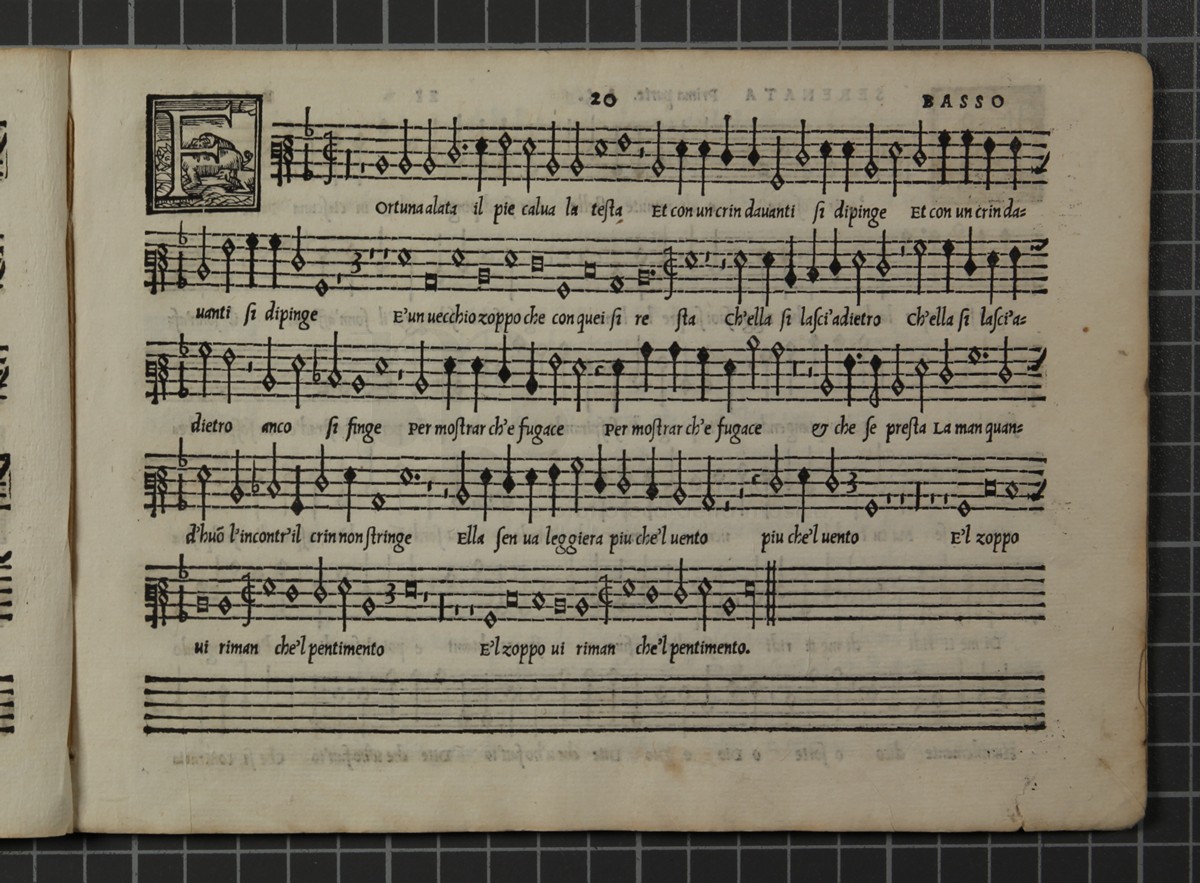 20 BASSO
FOrtuna alata il pie calua la testa Et con un crin dauanti si dipinge Et con un crin da=
uanti si dipinge E'un uecchio zoppo che con quei si re sta Ch'ella si lasci'adietro Ch'ella si lasci'a=
dietro anco si finge Per mostrar ch'e fugace Per mostrar ch'e fugace & che se presta La man quan=
d'huõ l'incontr'il crin non stringe Ella sen ua leggiera piu che'l uento piu che'l uento E'l zoppo
ui riman che'l pentimento E'l zoppo ui riman che'l pentimento.